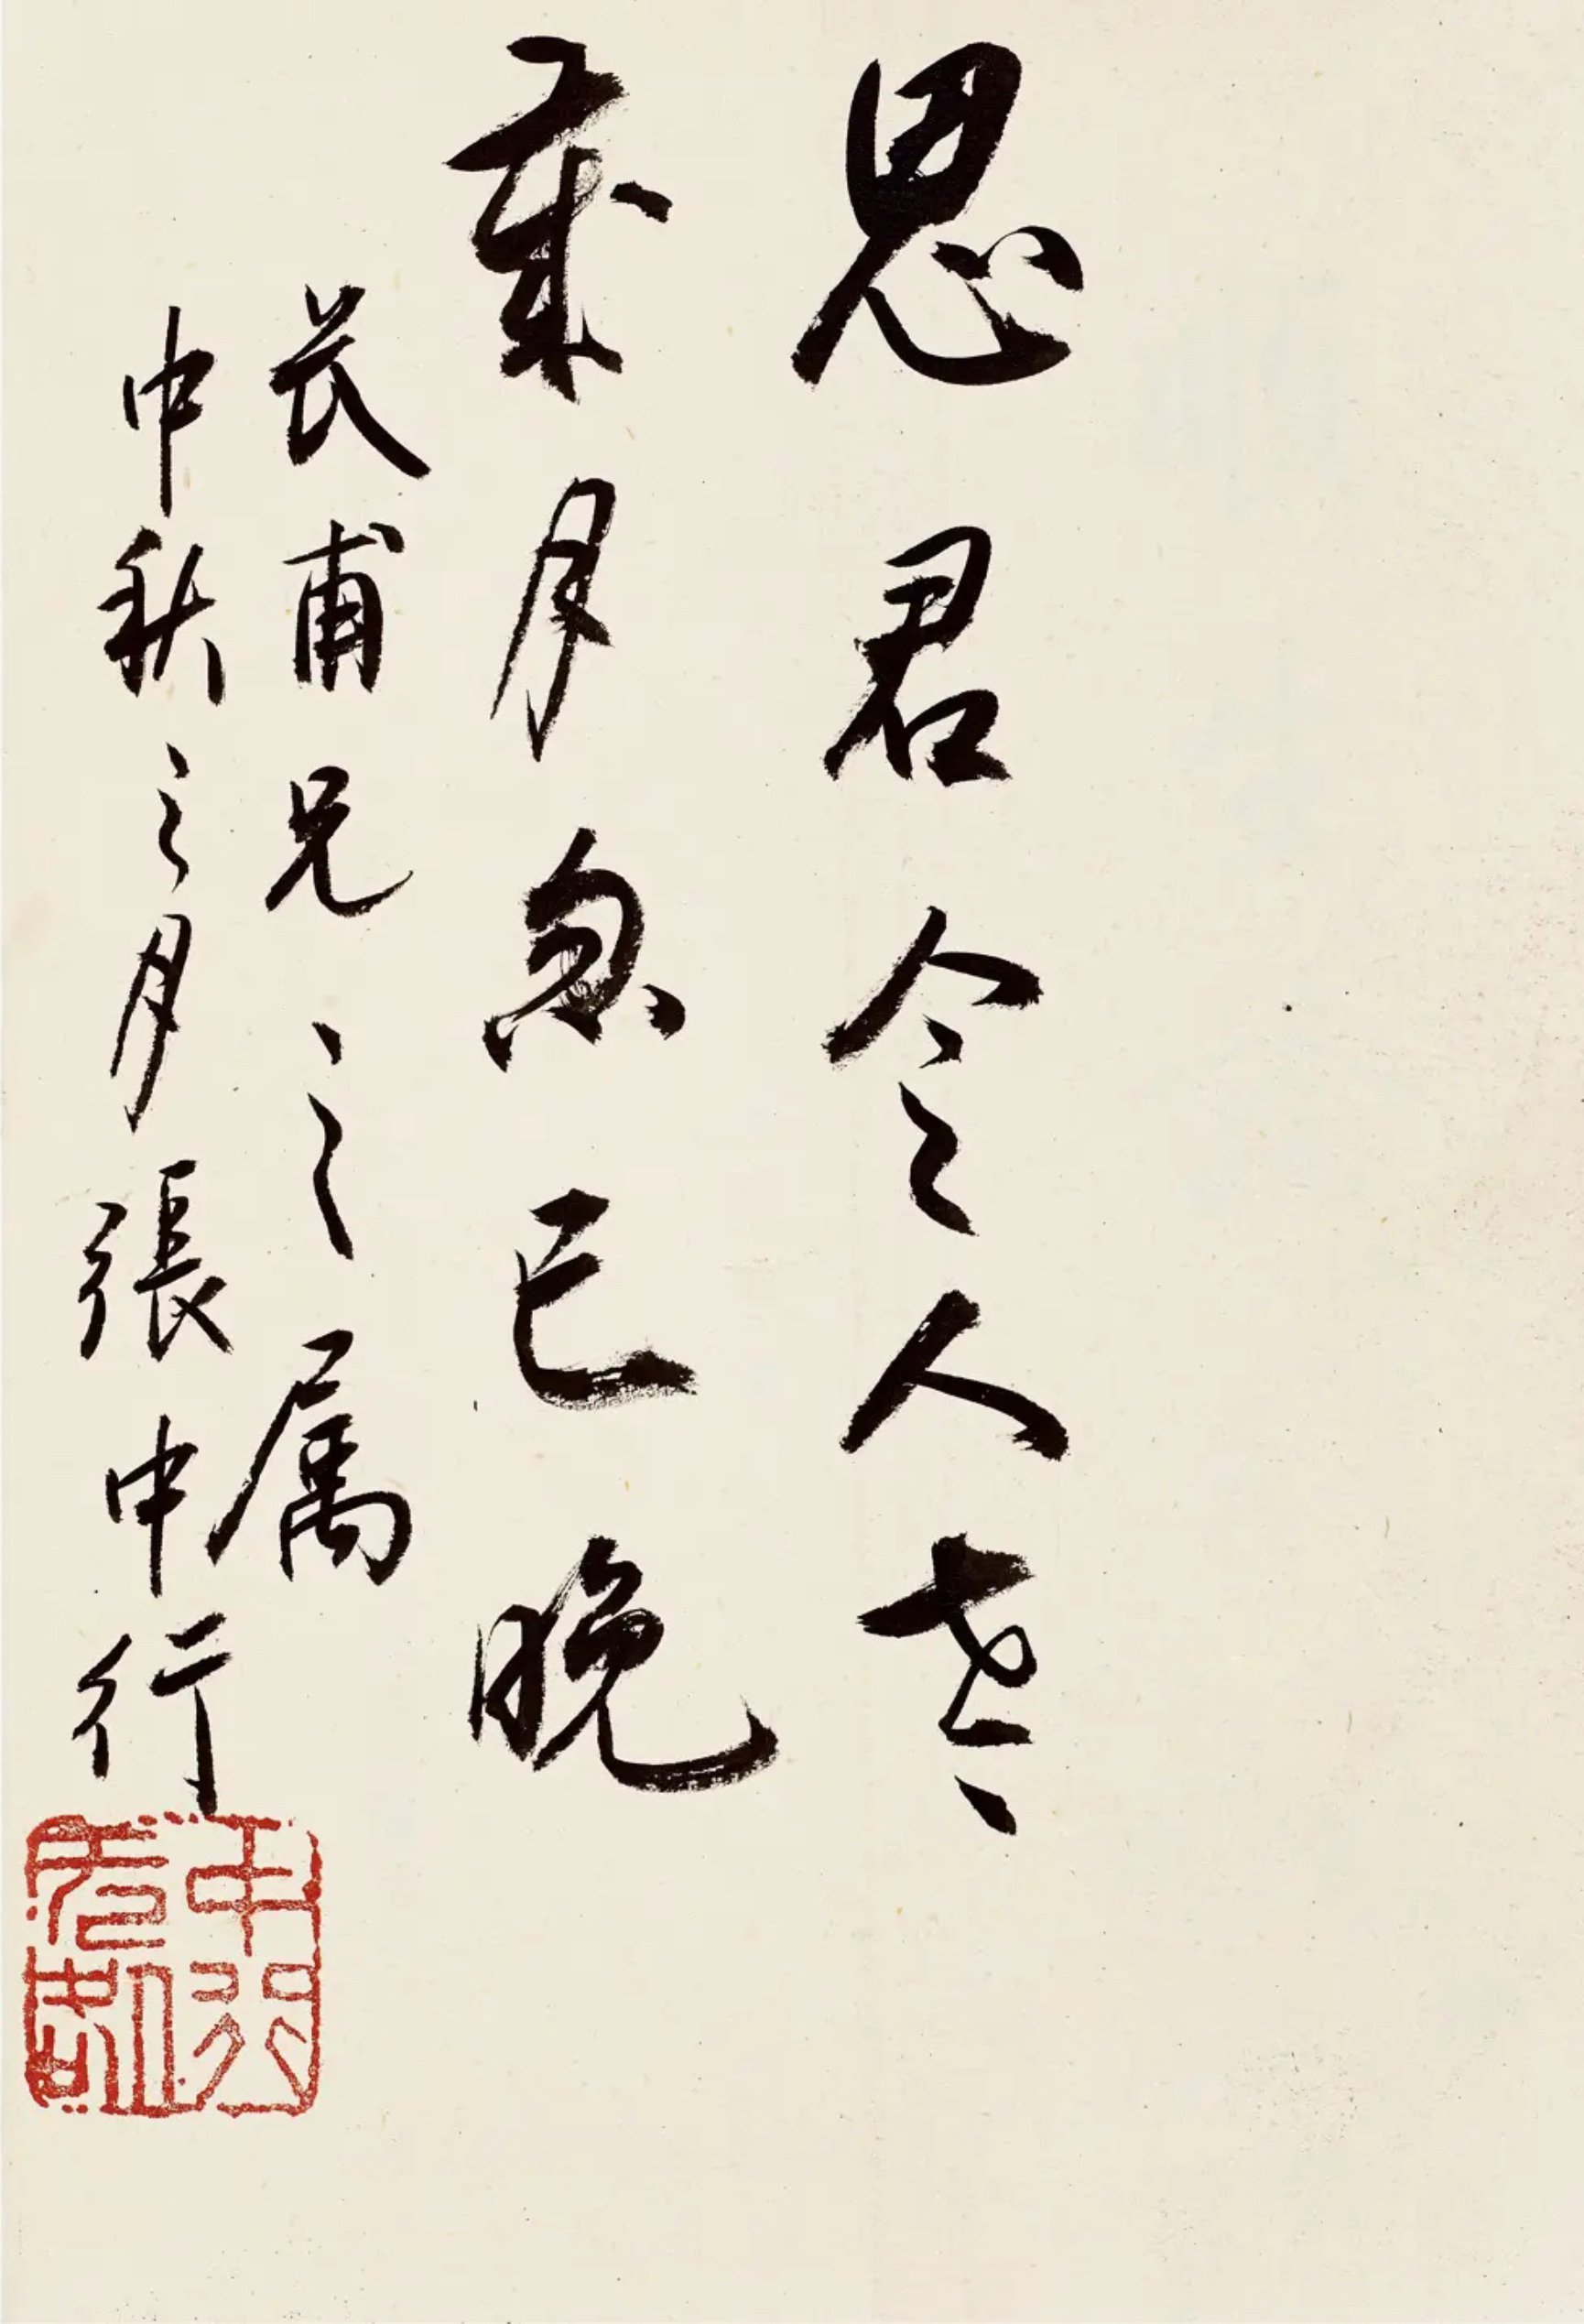 思君令人老
歲月忽已晚
長甫兄之属
中秋之月張中行